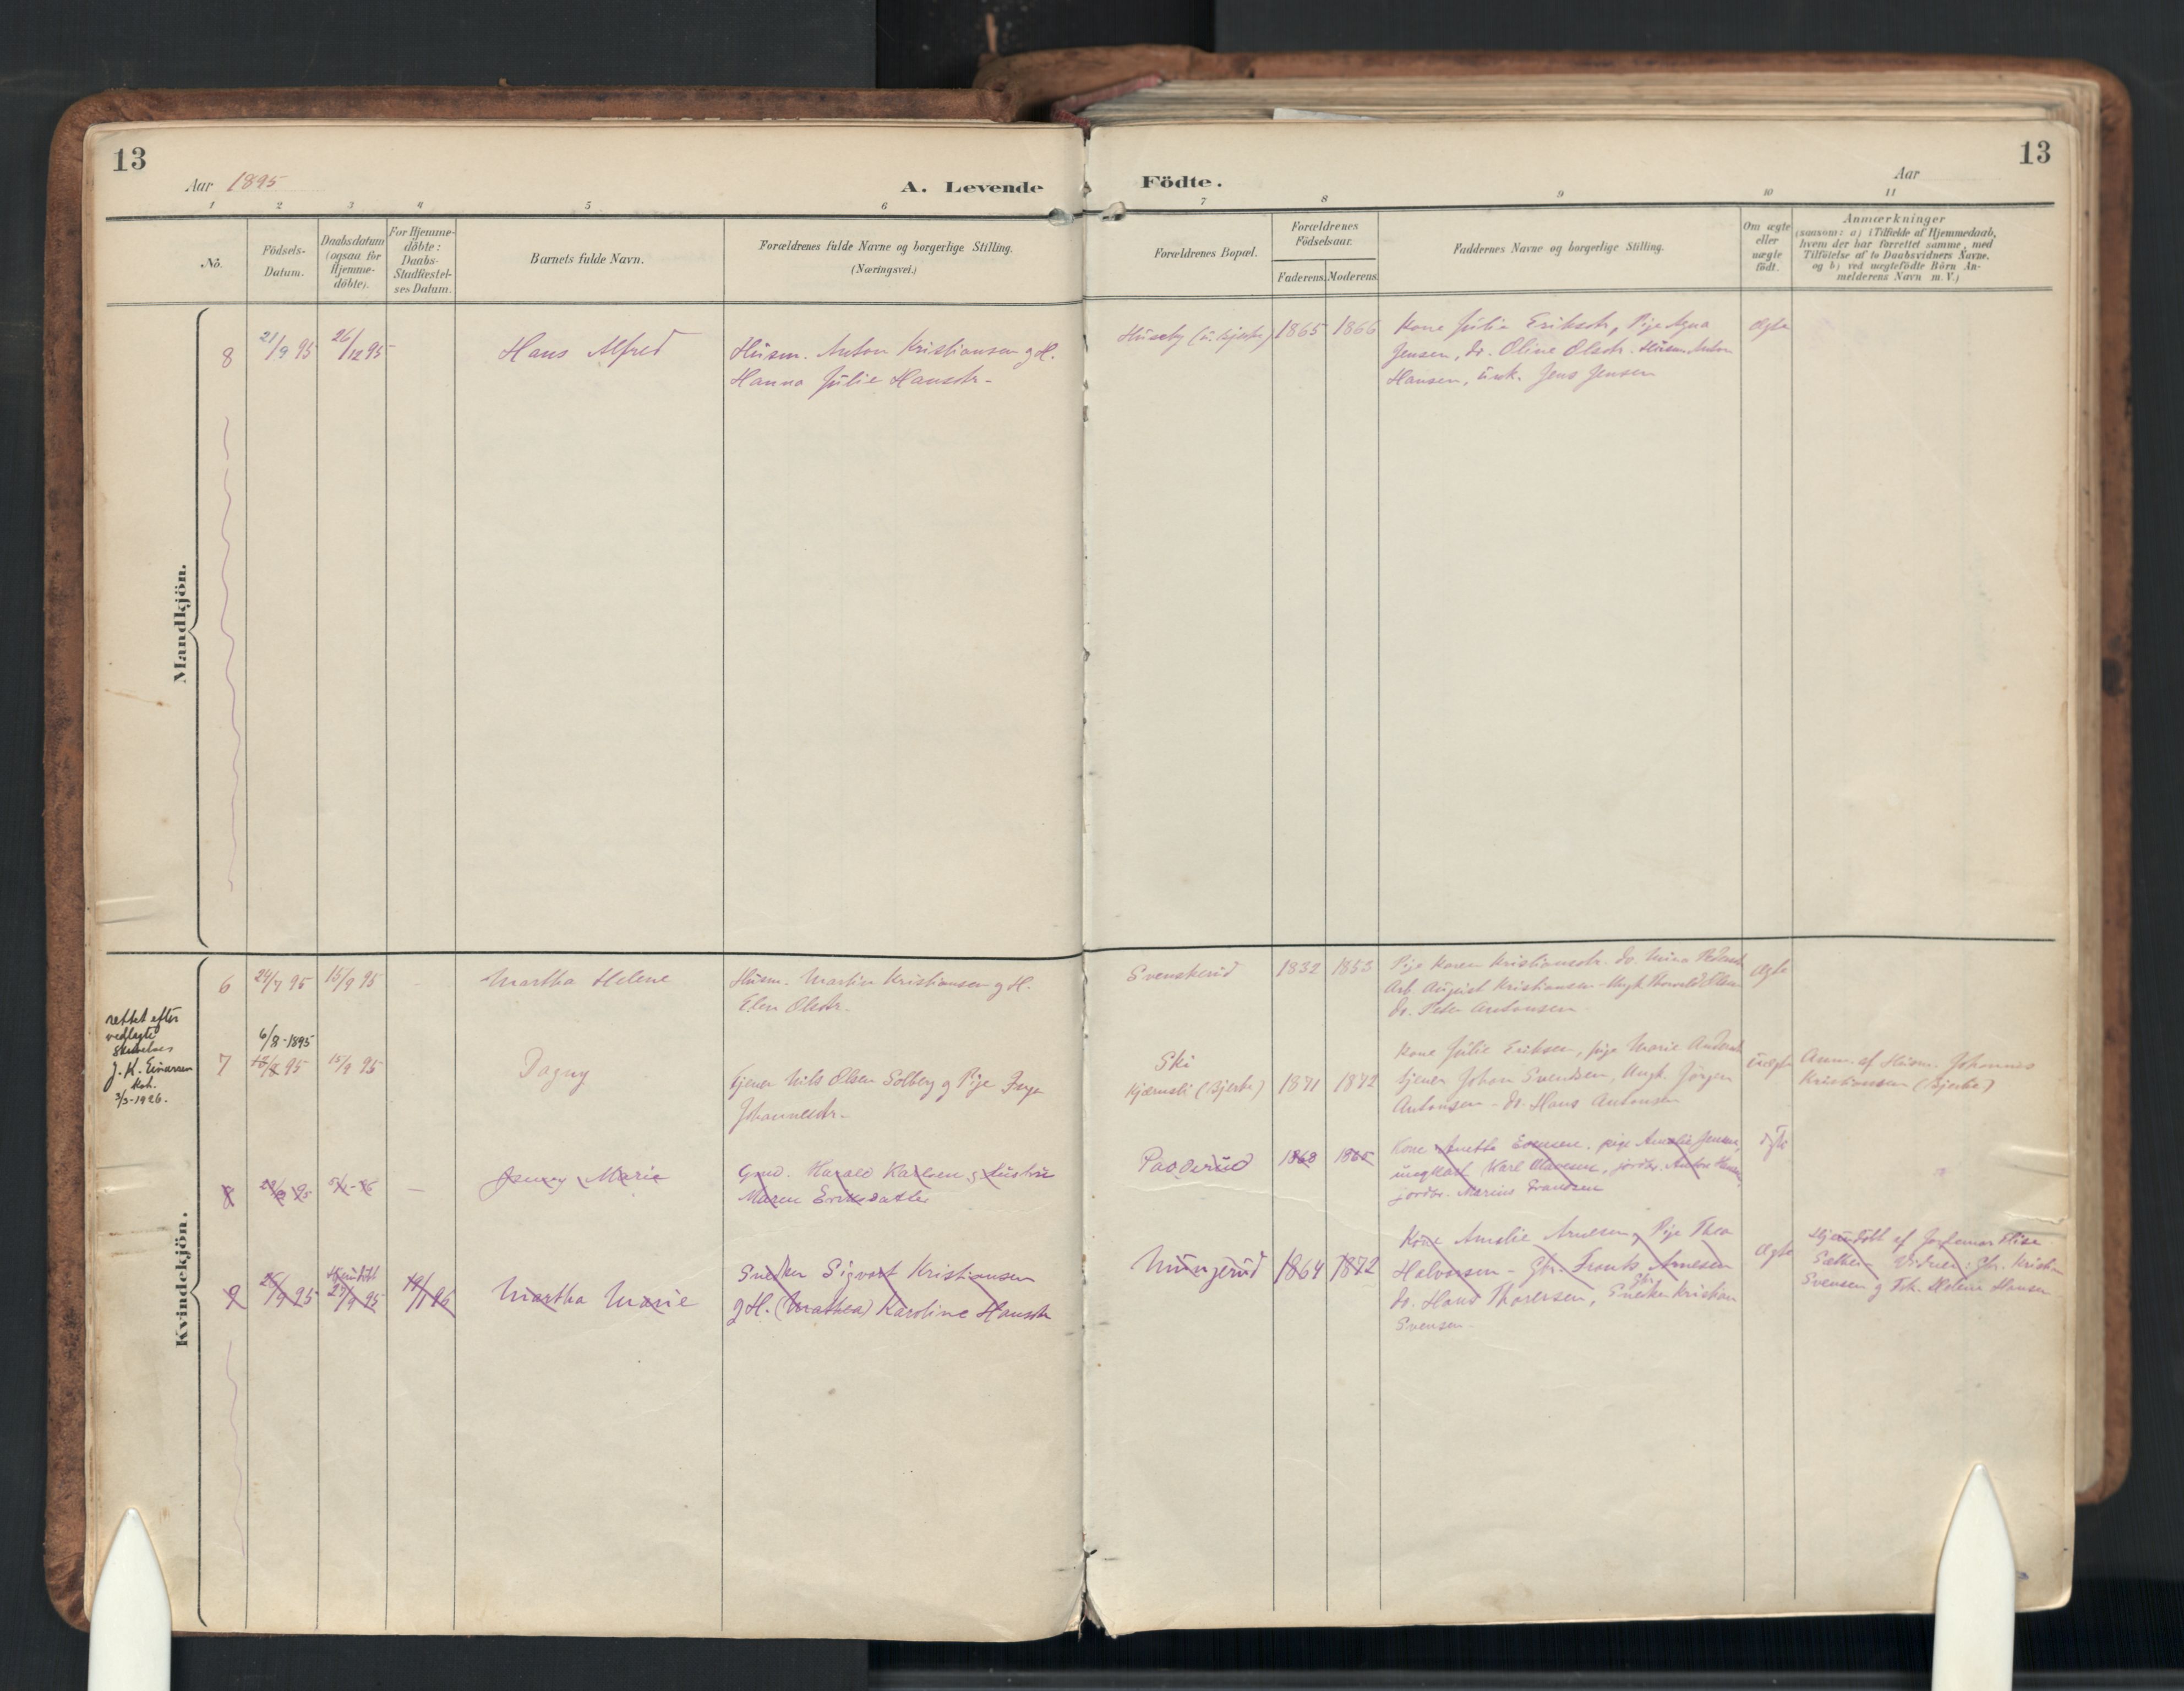 13
Aar 1895
A. Levende
Födte.
Aar
13
1 2 3 4 5 6 7 8 9 10 11
No.
Födsels-
Datum.
Daabsdatum
(ogsaa for
Hjemme-
döbte).
For Hjemme-
döbte:
Daabs-
Stadfæstel-
ses Datum.
Barnets fulde Navn.
Forældrenes fulde Navne og borgerlige Stilling.
(Næringsvei.)
Forældrenes Bopæl.
Forældrenes
Födselsaar.
Faderens. Moderens.
Faddernes Navne og borgerlige Stilling.
Om ægte
eller
uægte
födt.
Anmærkninger
(saasom: a) i Tilfælde af Hjemmedaab,
hvem der har forrettet samme, med
Tilföielse af to Daabsvidners Navne.
og b) ved uægtefödte Börn An-
melderens Navn m.V.)
Mandkjön.
8 21/9 95 26/12 95 Hans Alfred
Husm. Anton Kristiansen og H.
Hanna Julie Hansdtr.
Huseby (u. Bjerke) 1865 1866
Kone Julie Eriksdtr, Pige Agna
Jensen, do. Oline Olsdtr. Husm. Anton
Hansen, ungk. Jens Jensen
Ægte
Kvindekjön.
6 24/7 95 15/9 95 Martha Helene
Husm. Martin Kristiansen og H.
Elen Olsdtr.
Svenskerud 1832 1853
Pige Karen Kristiansdtr. do. Mina Pedersdtr
Arb. August Kristiansen - Ungk.
do. Peter Antonsen
Ægte
rettet efter
vedlagte
skrivelse
J. K. Einarsen
3/3-1926.
6/8-1895
7 95 15/9 95 Dagny
Tjener Nils Olsen Solberg og Pige
Johannesdtr.
Ski
Kjærnsli (Bjerke) 1871 1872
Kone Julie Eriksen, pige Marie
tjener Johan Svendsen, Ungk. Jörgen
Antonsen - do. Hans Antonsen
Uægte
Anm. af Husm. Johannes
Kristiansen (Bjerke)
8 — Jenny Marie
Gmd. Harald Karlsen og Hustru
Maren Eriksdatter
Paaderud 1868 1865
Kone Anette Evensen. pige Amalie Jensen,
ungkarl Karl Olavesen, jordbr. Anton Hansen,
jordbr. Marius Frandsen
Ægte
9 26/9 95 Hjemdöbt 29/9 95 19/1 96 Martha Marie
Snedker Sigvart Kristiansen
og H. (Mathea) Karoline Hansdtr
Mungerud 1864 1872
Kone Amalie Arnesen, Pige Thea
Halvorsen - Gbr. Frants Arnesen
do. Hans Thoresen, Snedker Kristian
Svensen
Ægte
Hjemdöbt af Jordemor Elise
Sæther Vidner: Gbr. Kristian
Svensen og Helene Hansen